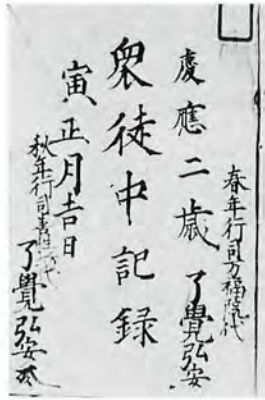 春年行司万福院代
了覺弘安
慶應二歳
衆徒中記録
寅正月吉日
秋年行司
代
了覺弘安